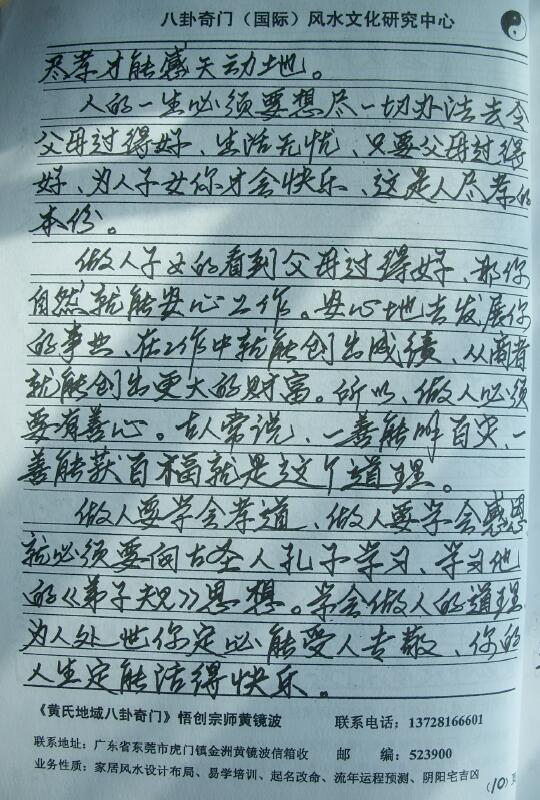 八卦奇门（国际）风水文化研究中心
尽孝才能感天动地。
人的一生必须要想尽一切办法去令
父母过得好、生活无忧、只要父母过得
好、为人子女你才会快乐、这是人尽孝的
本份。
做人子女的看到父母过得好、那你
自然就能安心工作。安心地去发展你
的事业、在工作中就能创出成绩、从商者
就能创出更大的财富。所以、做人必须
要有善心。古人常说、一善能解百灾、一
善能获百福就是这个道理。
做人要学会孝道、做人要学会感恩
就必须要向古圣人孔子学习、学习他
的《弟子规》思想。学会做人的道理
为人处世你定必能受人专敬、你的
人生定能活得快乐。
《黄氏地域八卦奇门》悟创宗师黄镜波 联系电话：13728166601
联系地址：广东省东莞市虎门镇金洲黄镜波信箱收 邮 编：523900
业务性质：家居风水设计布局、易学培训、起名改命、流年运程预测、阴阳宅吉凶
(10)